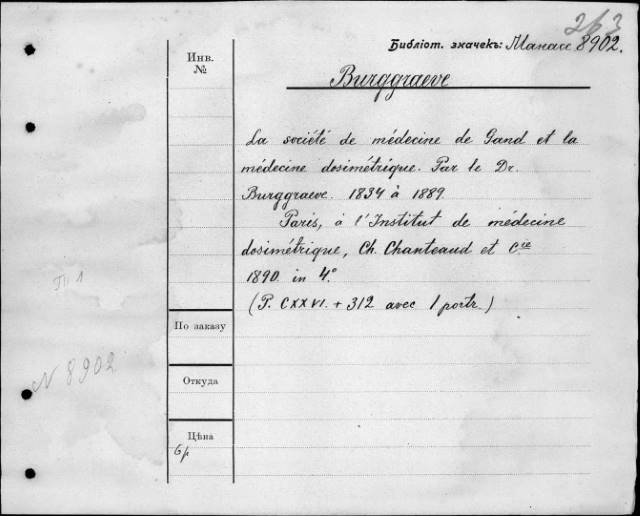 2f3
Библіот. значекъ: Манасс 8902.
Инв.
№
Burggraeve
La société de médecine de Gand et la
médecine dosimétrique. Par le Dr.
Burggraeve. 1834 à 1889.
Paris, à l'Institut de médecine
dosimétrique, Ch. Chanteaud et Cie
1890. in 4°
(P. CXXVI. + 312 avec 1 portr.)
По заказу
N 8902
Откуда
Цѣна
6р